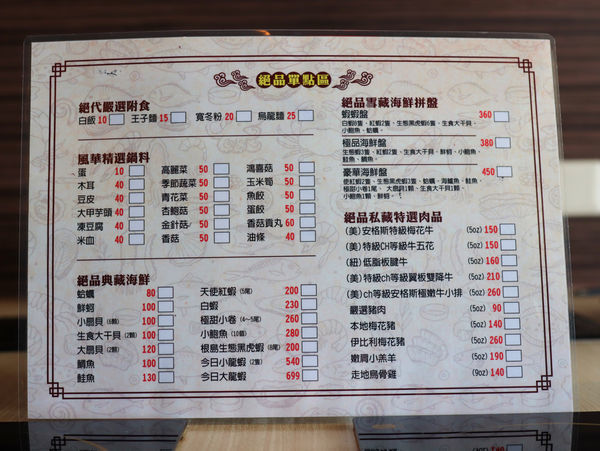 絕品單點區
絕代嚴選附食
白飯 10 王子麵 15 寬冬粉 20 烏龍麵 25
風華精選鍋料
蛋 10 高麗菜 50 鴻喜菇 50
木耳 40 季節蔬菜 50 玉米筍 50
豆皮 40 青花菜 50 魚餃 50
大甲芋頭 40 杏鮑菇 50 蛋餃 50
凍豆腐 40 金針菇 50 香菇貢丸 60
米血 40 香菇 50 油條 40
絕品典藏海鮮
蛤蠣 80 天使紅蝦 (5尾) 200
鮮蚵 100 白蝦 230
小扇貝 (6顆) 100 極甜小卷 (4~5尾) 260
生食大干貝 (2顆) 100 小鮑魚 (10個) 280
大扇貝 (2顆) 120 根島生態黑虎蝦 (8尾) 200
鯛魚 100 今日小龍蝦 (2隻) 540
鮭魚 130 今日大龍蝦 699
絕品雪藏海鮮拼盤
蝦蝦盤 360
白蝦6隻、紅蝦2隻、生態黑虎蝦6隻、生食大干貝、
小鮑魚、蛤蠣。
極品海鮮盤 380
生態蝦3隻、紅蝦2隻、生食大干貝、鮮蚵、小鮑魚、
鮭魚、鯛魚。
豪華海鮮盤 450
使紅蝦2隻、生態黑虎蝦3隻、蛤蠣、海鱺魚、鮭魚、
極甜小卷1尾、大扇貝1顆、生食大干貝1顆、
小鮑魚1顆、鮮蚵。
絕品私藏特選肉品
(美)安格斯特級梅花牛 (5oz) 150
(美)特級CH等級牛五花 (5oz) 150
(紐)低脂板腱牛 (5oz) 160
(美)特級ch等級翼板雙降牛 (5oz) 210
(美)ch等級安格斯極嫩牛小排 (5oz) 260
嚴選豬肉 (5oz) 90
本地梅花豬 (5oz) 140
伊比利梅花豬 (5oz) 260
嫩肩小羔羊 (5oz) 190
走地烏骨雞 (9oz) 140